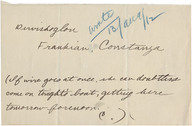 Dervishoglou
wrote
12/aug/12
Frankian, Constanza
(If wire goes at once, he can doubtless
come on tonight's boat, getting here
tomorrow forenoon.)
(C.)